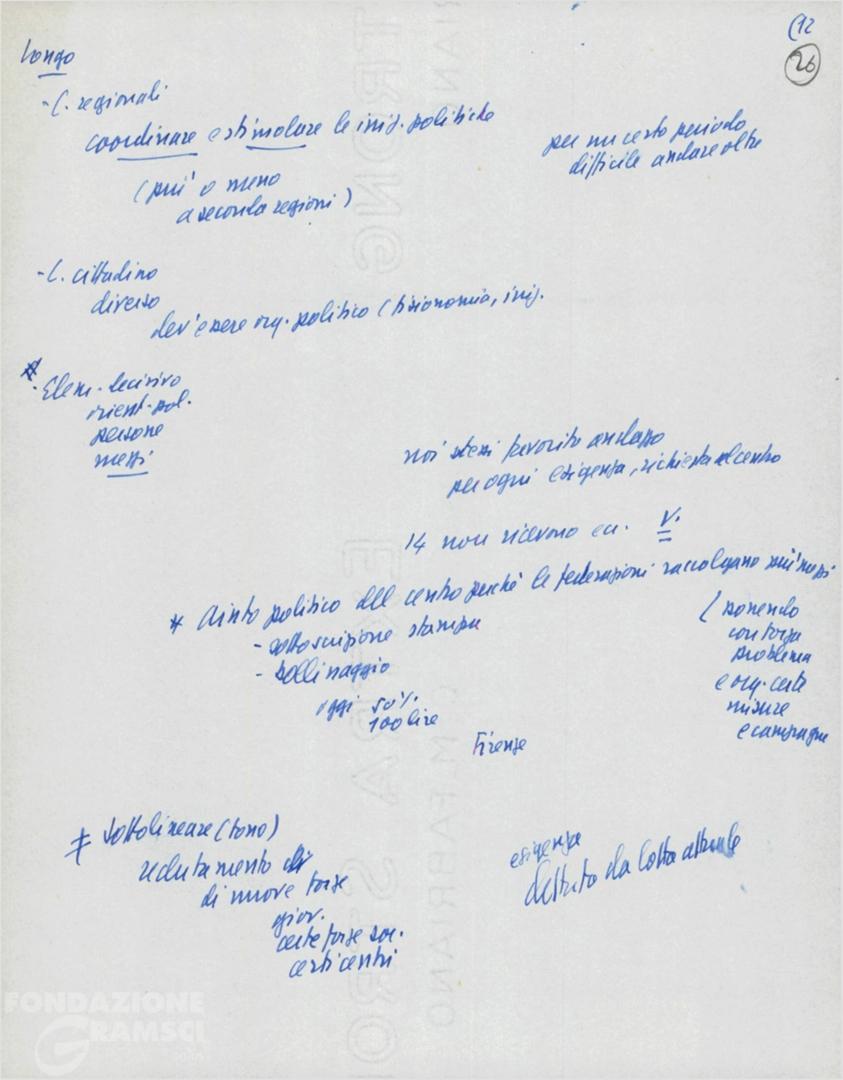 (12
26
Longo
- C. regionali
coordinare e stimolare le iniz. politiche
per un certo periodo
difficile andare oltre
(piu' o meno
a seconda regioni)
- C. cittadino
diverso
dev'essere org. politico (fisionomia, iniz.
* - Elem. decisivo
orient. pol.
persone
mezzi
noi stessi favorito andazzo
per ogni esigenza, richiesta al centro
14 non ricevono
V.
* Aiuto politico del centro perché le federazioni raccolgano più mezzi
- sottoscrizione stampa
- bollinaggio
oggi 50%
100 lire
Firenze
( ponendo
con forza
problema
e org. certe
misure
e campagne
‡ Sottolineare (tono)
reclutamento di
di nuove forze
giov.
certe forze soc.
certi centri
esigenza
dettato da lotta attuale
FONDAZIONE
GRAMSCI
STRONG
EXTRA
C.M. FABRIANO